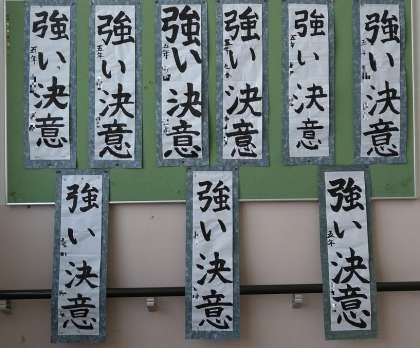 強い決意
五年
強い決意
五年
強い決意
五年
強い決意
五年
強い決意
五年
強い決意
五年
強い決意
強い決意
強い決意
五年